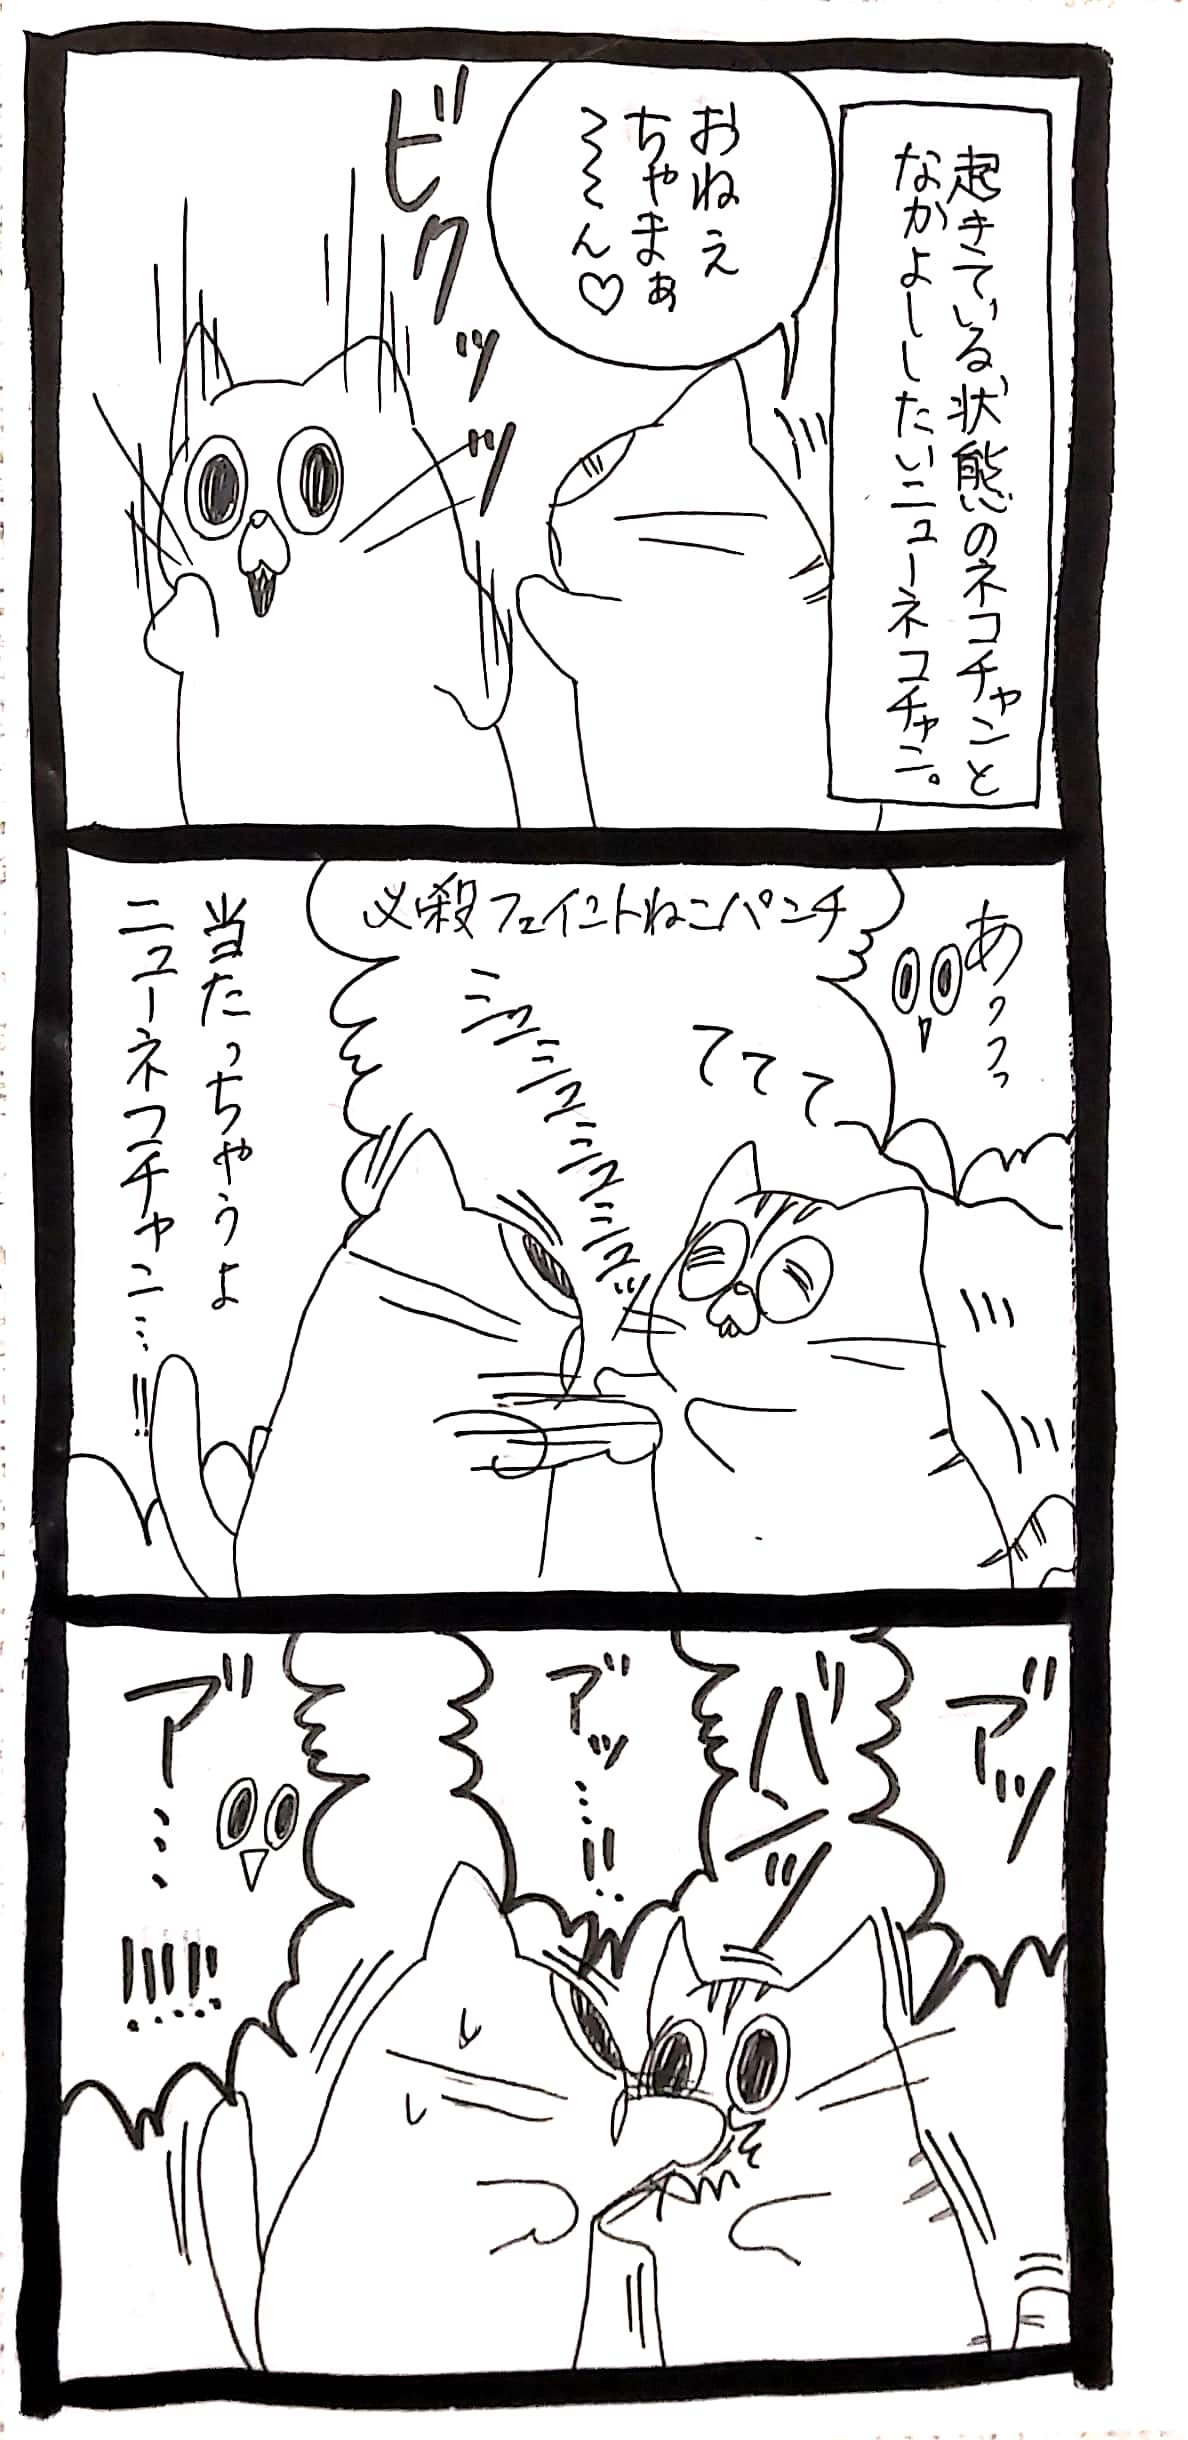 起きている状態のネコチャンと
なかよししたいニューネコチャン。
おねえ
ちゃまぁ
〜〜〜ん♡
ビクッッ
あっっっ
必殺フェイントねこパンチ
ててて
シュシュシュシュシュッ
当たっちゃうよ
ニューネコチャン…!!
アッ
バシッ
アッ…!!
ア…
!!!!!